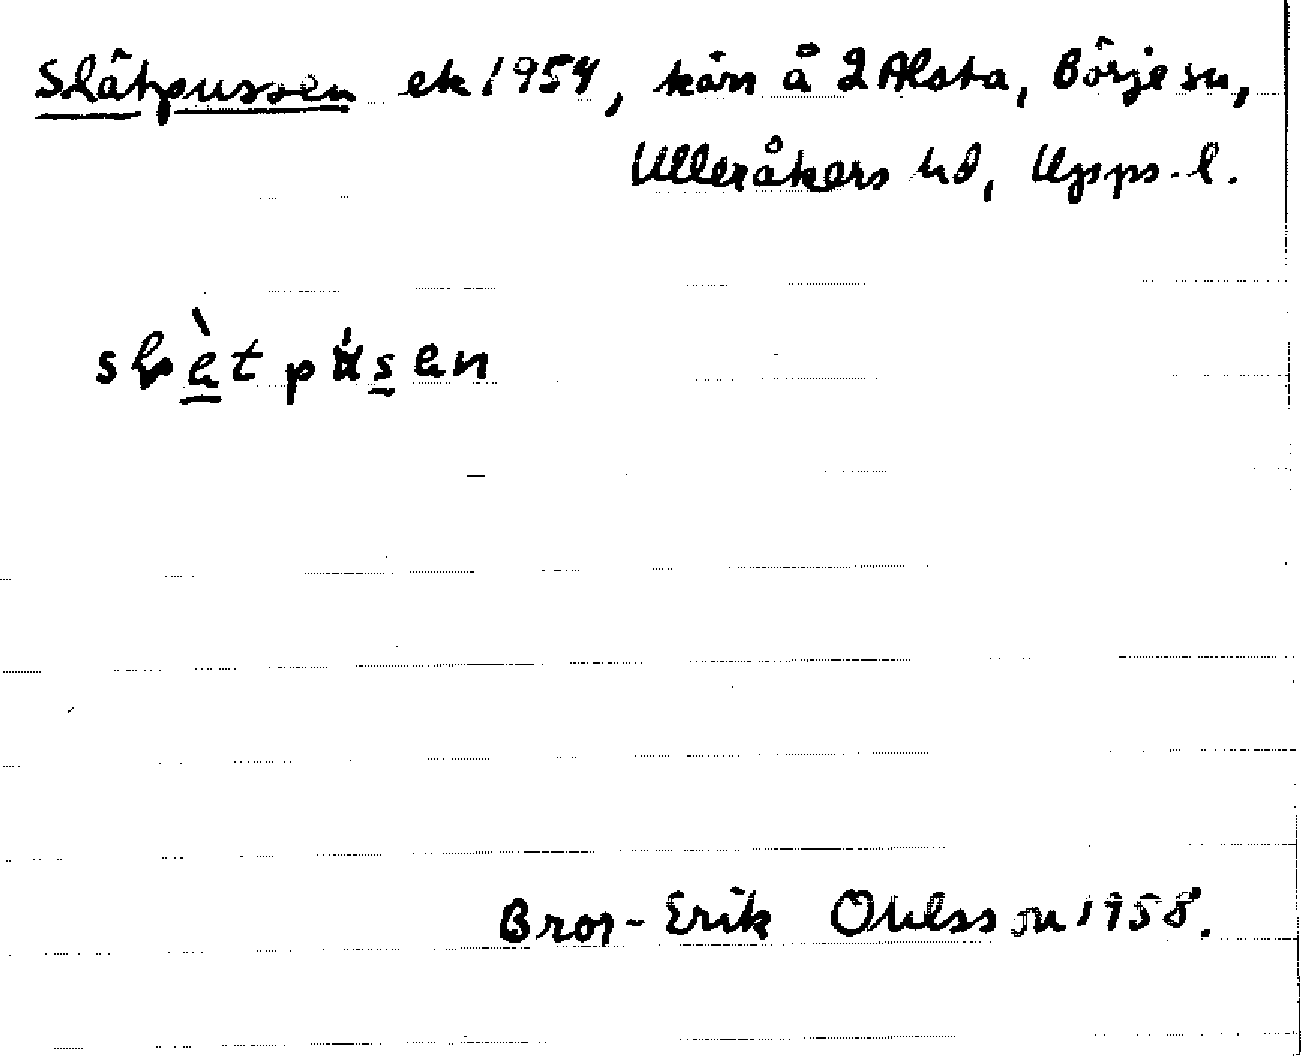 Slätpussen ek 1954, kärr å 2 Alsta, Börje sn,
Ulleråkers hd, Upps. l.
Bror-Erik Ohlsson 1958.